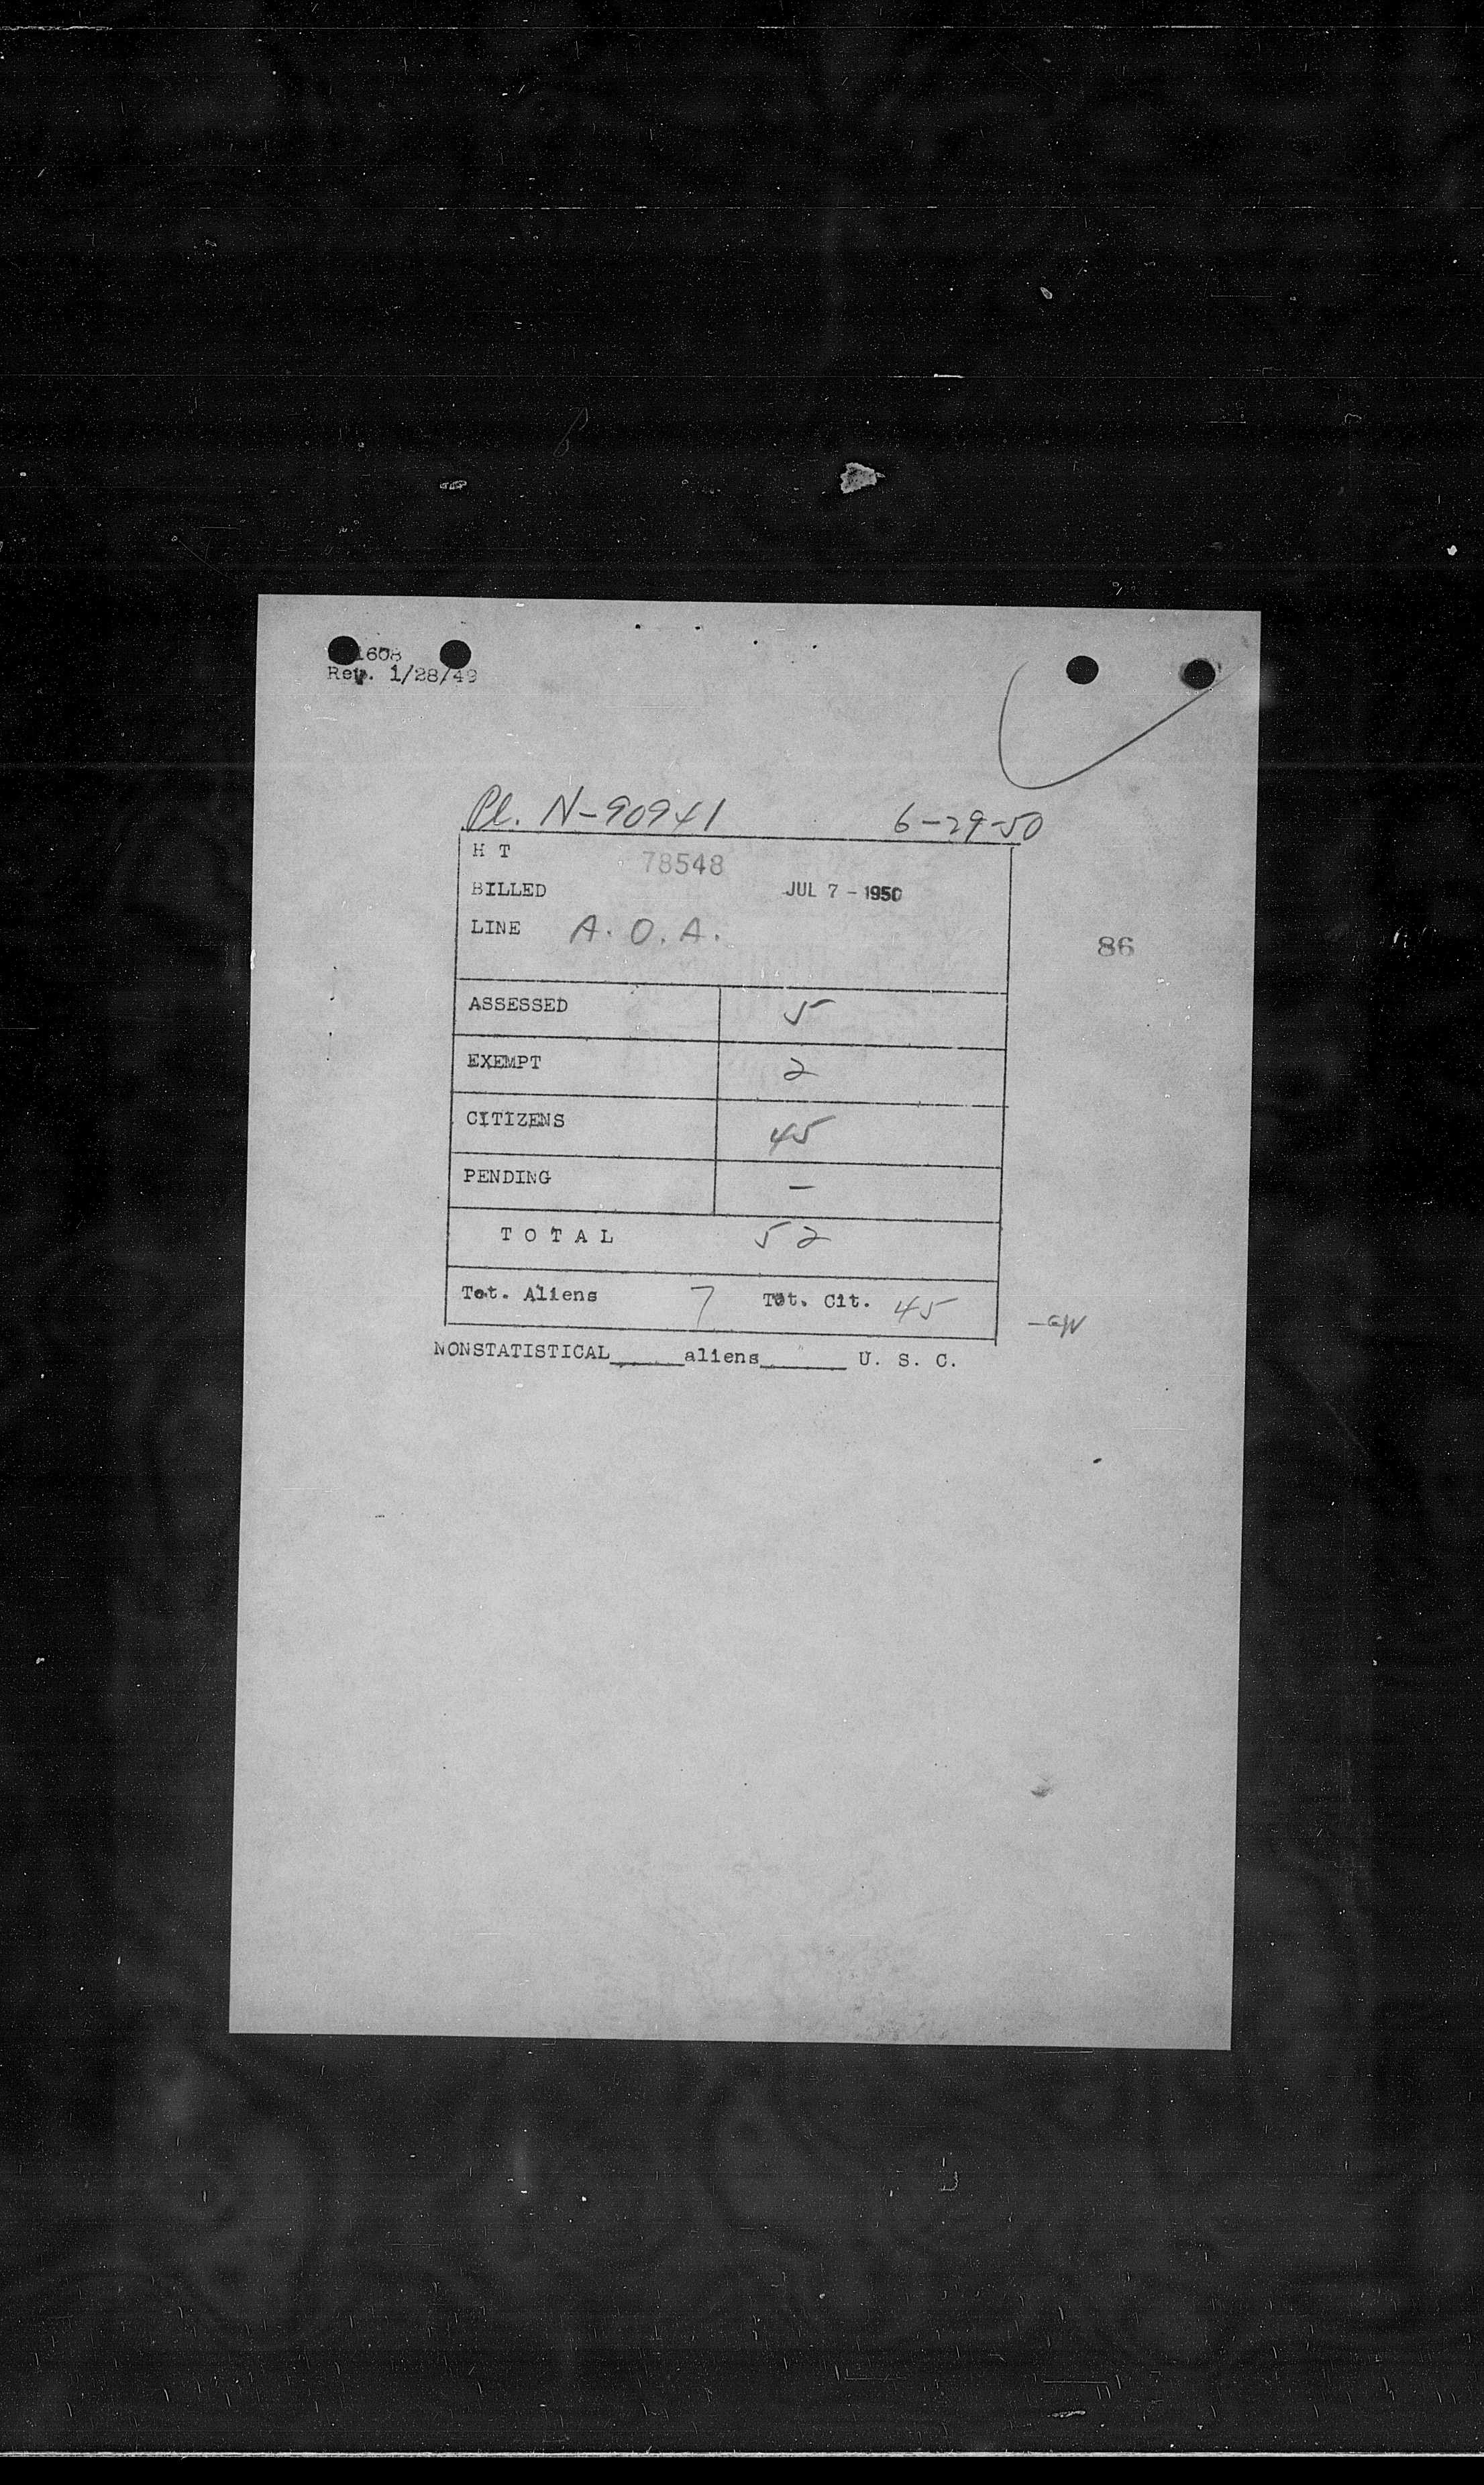 1608
Rev. 1/28/49
Pl. N-90941 6-29-50
H T 78548
BILLED JUL 7 - 1950
LINE A. O. A.
86
ASSESSED 5
EXEMPT 2
CITIZENS 45
PENDING –
T O T A L 52
Tot. Aliens 7 Tot. Cit. 45
NONSTATISTICAL_____aliens______ U. S. C.